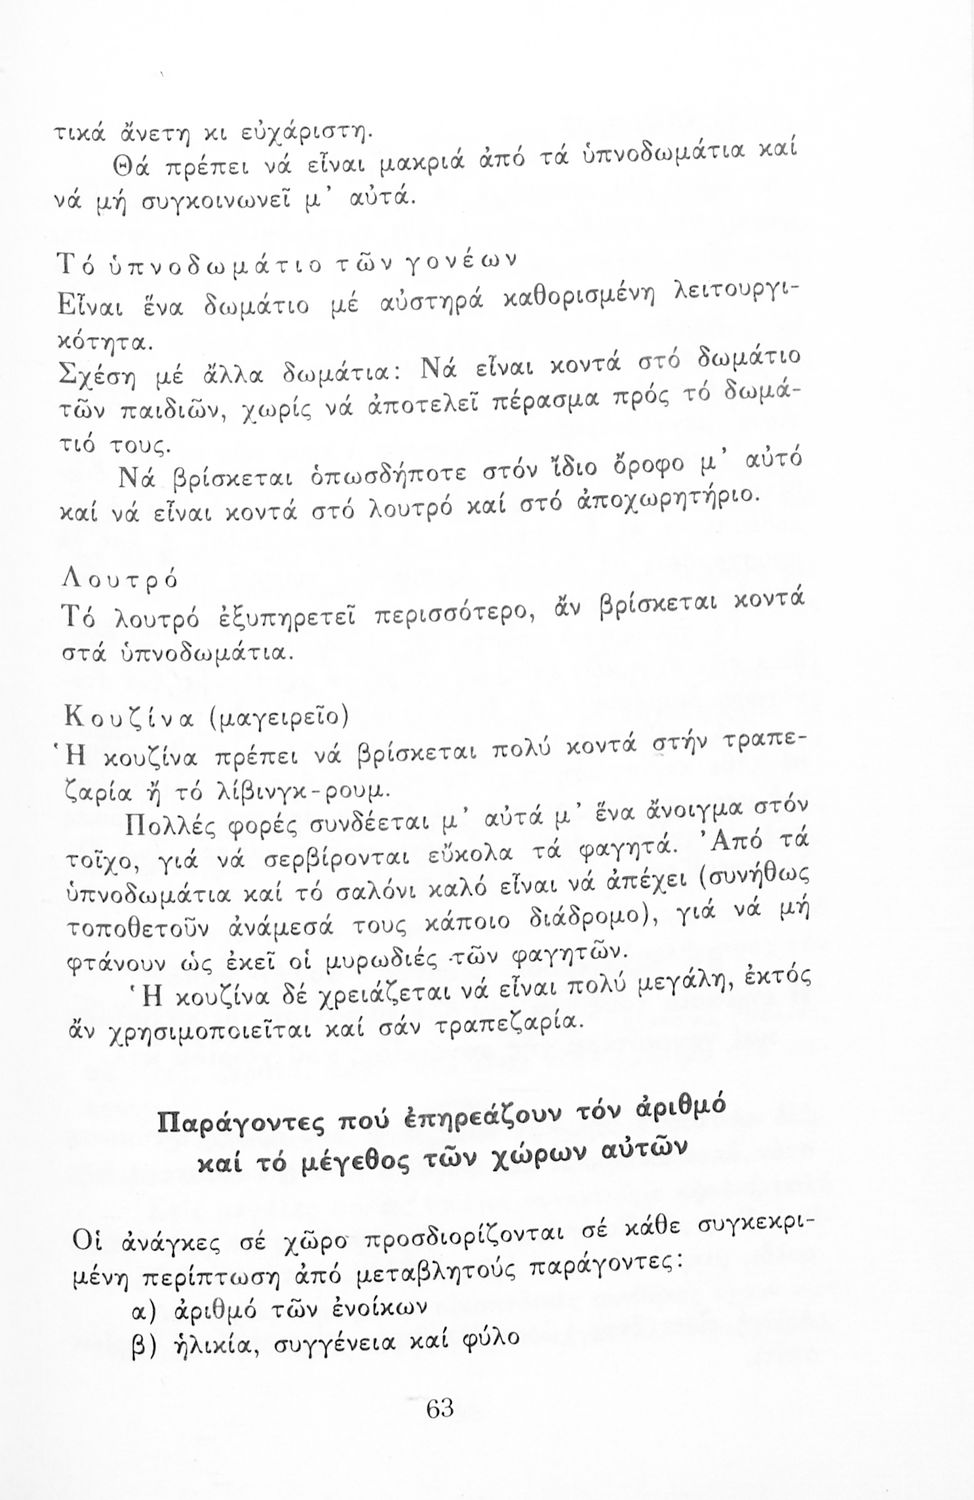 τικά ἄνετη κι εὐχάριστη.
Θά πρέπει νά εἶναι μακριά ἀπό τά ὑπνοδωμάτια καί
νά μή συγκοινωνεῖ μ᾽ αὐτά.
Τό ὑπνοδωμάτιο τῶν γονέων
Εἶναι ἕνα δωμάτιο μέ αὐστηρά καθορισμένη λειτουργι-
κότητα.
Σχέση μέ ἄλλα δωμάτια: Νά εἶναι κοντά στό δωμάτιο
τῶν παιδιῶν, χωρίς νά ἀποτελεῖ πέρασμα πρός τό δωμά-
τιό τους.
Νά βρίσκεται ὁπωσδήποτε στόν ἴδιο ὄροφο μ᾽ αὐτό
καί νά εἶναι κοντά στό λουτρό καί στό ἀποχωρητήριο.
Λουτρό
Τό λουτρό ἐξυπηρετεῖ περισσότερο, ἄν βρίσκεται κοντά
στά ὑπνοδωμάτια.
Κουζίνα (μαγειρεῖο)
Ἡ κουζίνα πρέπει νά βρίσκεται πολύ κοντά στήν τραπε-
ζαρία ἤ τό λίβινγκ-ρουμ.
Πολλές φορές συνδέεται μ᾽ αὐτά μ᾽ ἕνα ἄνοιγμα στόν
τοῖχο, γιά νά σερβίρονται εὔκολα τά φαγητά. Ἀπό τά
ὑπνοδωμάτια καί τό σαλόνι καλό εἶναι νά ἀπέχει (συνήθως
τοποθετοῦν ἀνάμεσά τους κάποιο διάδρομο), γιά νά μή
φτάνουν ὡς ἐκεῖ οἱ μυρωδιές τῶν φαγητῶν.
Ἡ κουζίνα δέ χρειάζεται νά εἶναι πολύ μεγάλη, ἐκτός
ἄν χρησιμοποιεῖται καί σάν τραπεζαρία.
Παράγοντες πού ἐπηρεάζουν τόν ἀριθμό
καί τό μέγεθος τῶν χώρων αὐτῶν
Οἱ ἀνάγκες σέ χῶρο προσδιορίζονται σέ κάθε συγκεκρι-
μένη περίπτωση ἀπό μεταβλητούς παράγοντες:
α) ἀριθμό τῶν ἐνοίκων
β) ἡλικία, συγγένεια καί φύλο
63